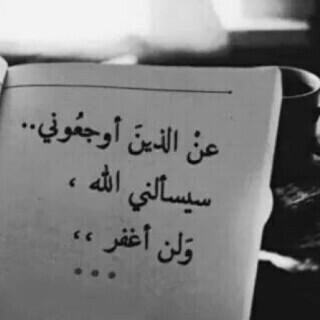 عنْ الذينَ أوجعُوني..
سيسألني الله ،
وَلن أغفر ،،
...